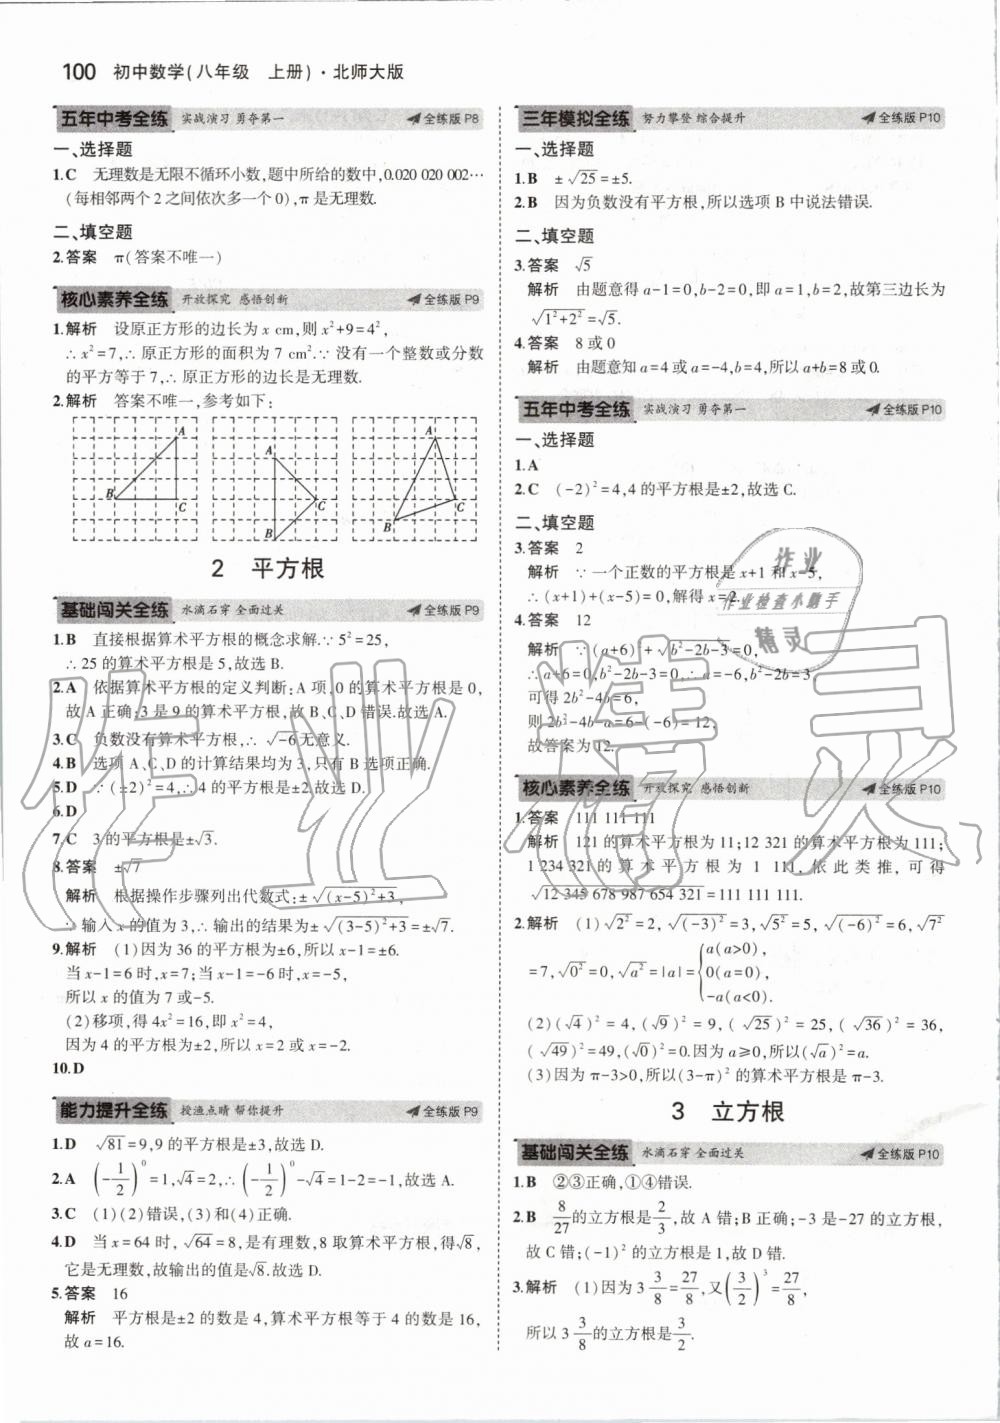 100 初中数学(八年级 上册)·北师大版
五年中考全练 实战演习 勇夺第一 全练版 P8
一、选择题
1.C 无理数是无限不循环小数,题中所给的数中,0.020 020 002…
(每相邻两个 2 之间依次多一个 0),π是无理数.
二、填空题
2.答案 π(答案不唯一)
核心素养全练 开放探究 感悟创新 全练版 P9
1.解析 设原正方形的边长为 x cm,则 x²+9=4²,
∴ x²=7,∴ 原正方形的面积为 7 cm².∵ 没有一个整数或分数
的平方等于 7,∴ 原正方形的边长是无理数.
2.解析 答案不唯一,参考如下:
A B C
A B C
A B C
2 平方根
基础闯关全练 水滴石穿 全面过关 全练版 P9
1.B 直接根据算术平方根的概念求解.∵ 5²=25,
∴ 25 的算术平方根是 5,故选 B.
2.A 依据算术平方根的定义判断:A 项,0 的算术平方根是 0,
故 A 正确;3 是 9 的算术平方根,故 B、C、D 错误.故选 A.
3.C 负数没有算术平方根,∴ √-6无意义.
4.B 选项 A、C、D 的计算结果均为 3,只有 B 选项正确.
5.D ∵ (±2)²=4,∴ 4 的平方根是±2,故选 D.
6.D
7.C 3 的平方根是±√3.
8.答案 ±√7
解析 根据操作步骤列出代数式:±√(x-5)²+3,
∴ 输入 x 的值为 3,∴ 输出的结果为±√(3-5)²+3=±√7.
9.解析 (1)因为 36 的平方根为±6,所以 x-1=±6.
当 x-1=6 时,x=7;当 x-1=-6 时,x=-5,
所以 x 的值为 7 或-5.
(2)移项,得 4x²=16,即 x²=4,
因为 4 的平方根为±2,所以 x=2 或 x=-2.
10.D
能力提升全练 授渔点睛 帮你提升 全练版 P9
1.D √81=9,9 的平方根是±3,故选 D.
2.A (-1/2)⁰=1,√4=2,∴ (-1/2)⁰-√4=1-2=-1,故选 A.
3.C (1)(2)错误,(3)和(4)正确.
4.D 当 x=64 时,√64=8,是有理数,8 取算术平方根,得√8,
它是无理数,故输出的值是√8.故选 D.
5.答案 16
解析 平方根是±2 的数是 4,算术平方根等于 4 的数是 16,
故 a=16.
三年模拟全练 努力攀登 综合提升 全练版 P10
一、选择题
1.B ±√25=±5.
2.B 因为负数没有平方根,所以选项 B 中说法错误.
二、填空题
3.答案 √5
解析 由题意得 a-1=0,b-2=0,即 a=1,b=2,故第三边长为
√1²+2²=√5.
4.答案 8 或 0
解析 由题意知 a=4 或 a=-4,b=4,所以 a+b=8 或 0.
五年中考全练 实战演习 勇夺第一 全练版 P10
一、选择题
1.A
2.C (-2)²=4,4 的平方根是±2,故选 C.
二、填空题
3.答案 2
解析 ∵ 一个正数的平方根是 x+1 和 x-5,
∴ (x+1)+(x-5)=0,解得 x=2.
4.答案 12
解析 ∵ (a+6)²+√b²-2b-3=0,
∴ a+6=0,b²-2b-3=0,∴ a=-6,b²-2b=3,
可得 2b²-4b=6,
则 2b²-4b-a=6-(-6)=12,
故答案为 12.
核心素养全练 开放探究 感悟创新 全练版 P10
1.答案 111 111 111
解析 121 的算术平方根为 11;12 321 的算术平方根为 111;
1 234 321 的算术平方根为 1 111,依此类推,可得
√12 345 678 987 654 321=111 111 111.
2.解析 (1)√2²=2,√(-3)²=3,√5²=5,√(-6)²=6,√7²
=7,√0²=0,√a²=|a|={a(a>0), 0(a=0), -a(a<0).
(2)(√4)²=4,(√9)²=9,(√25)²=25,(√36)²=36,
(√49)²=49,(√0)²=0.因为 a≥0,所以(√a)²=a.
(3)因为 π-3>0,所以(3-π)² 的算术平方根是 π-3.
3 立方根
基础闯关全练 水滴石穿 全面过关 全练版 P10
1.B ②③正确,①④错误.
2.B 8/27的立方根是2/3,故 A 错;B 正确;-3 是-27 的立方根,
故 C 错;(-1)² 的立方根是 1,故 D 错.
3.解析 (1)因为 3 3/8=27/8,又(3/2)³=27/8,
所以 3 3/8的立方根是3/2.
作业
作业检查小助手
精灵
作业精灵